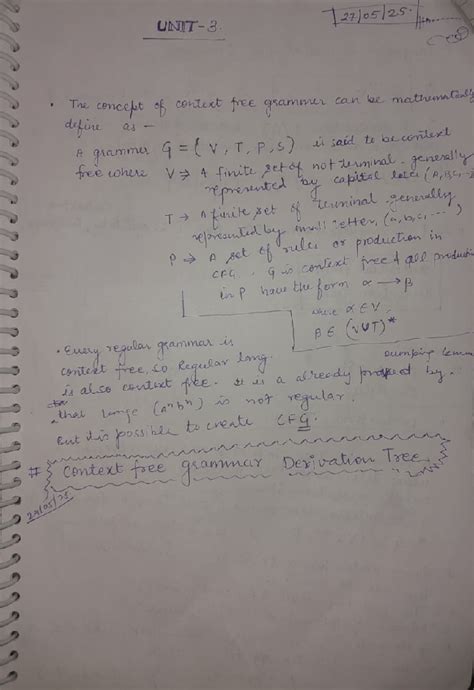 27/05/25.
UNIT-3.
• The concept of context free grammer can be mathematically
define as —
A grammer G = { V, T, P, S } is said to be context
free where V → A finite set of not terminal. generally
represented by capital letter (A, B, C, ...)
T → A finite set of terminal. generally
represented by small letter, (a, b, c, ...)
P → A set of rules or production in
CFG. G is context free & all production
in P have the form α → β
where α ∈ V.
β ∈ (VUT)*
• Every regular grammar is
context free, so Regular lang.
is also context free. It is a already proved by. Pumping lemma
that lange (aⁿbⁿ) is not regular.
But it is possible to create CFG.
# Context free grammar Derivation Tree
27/05/25.